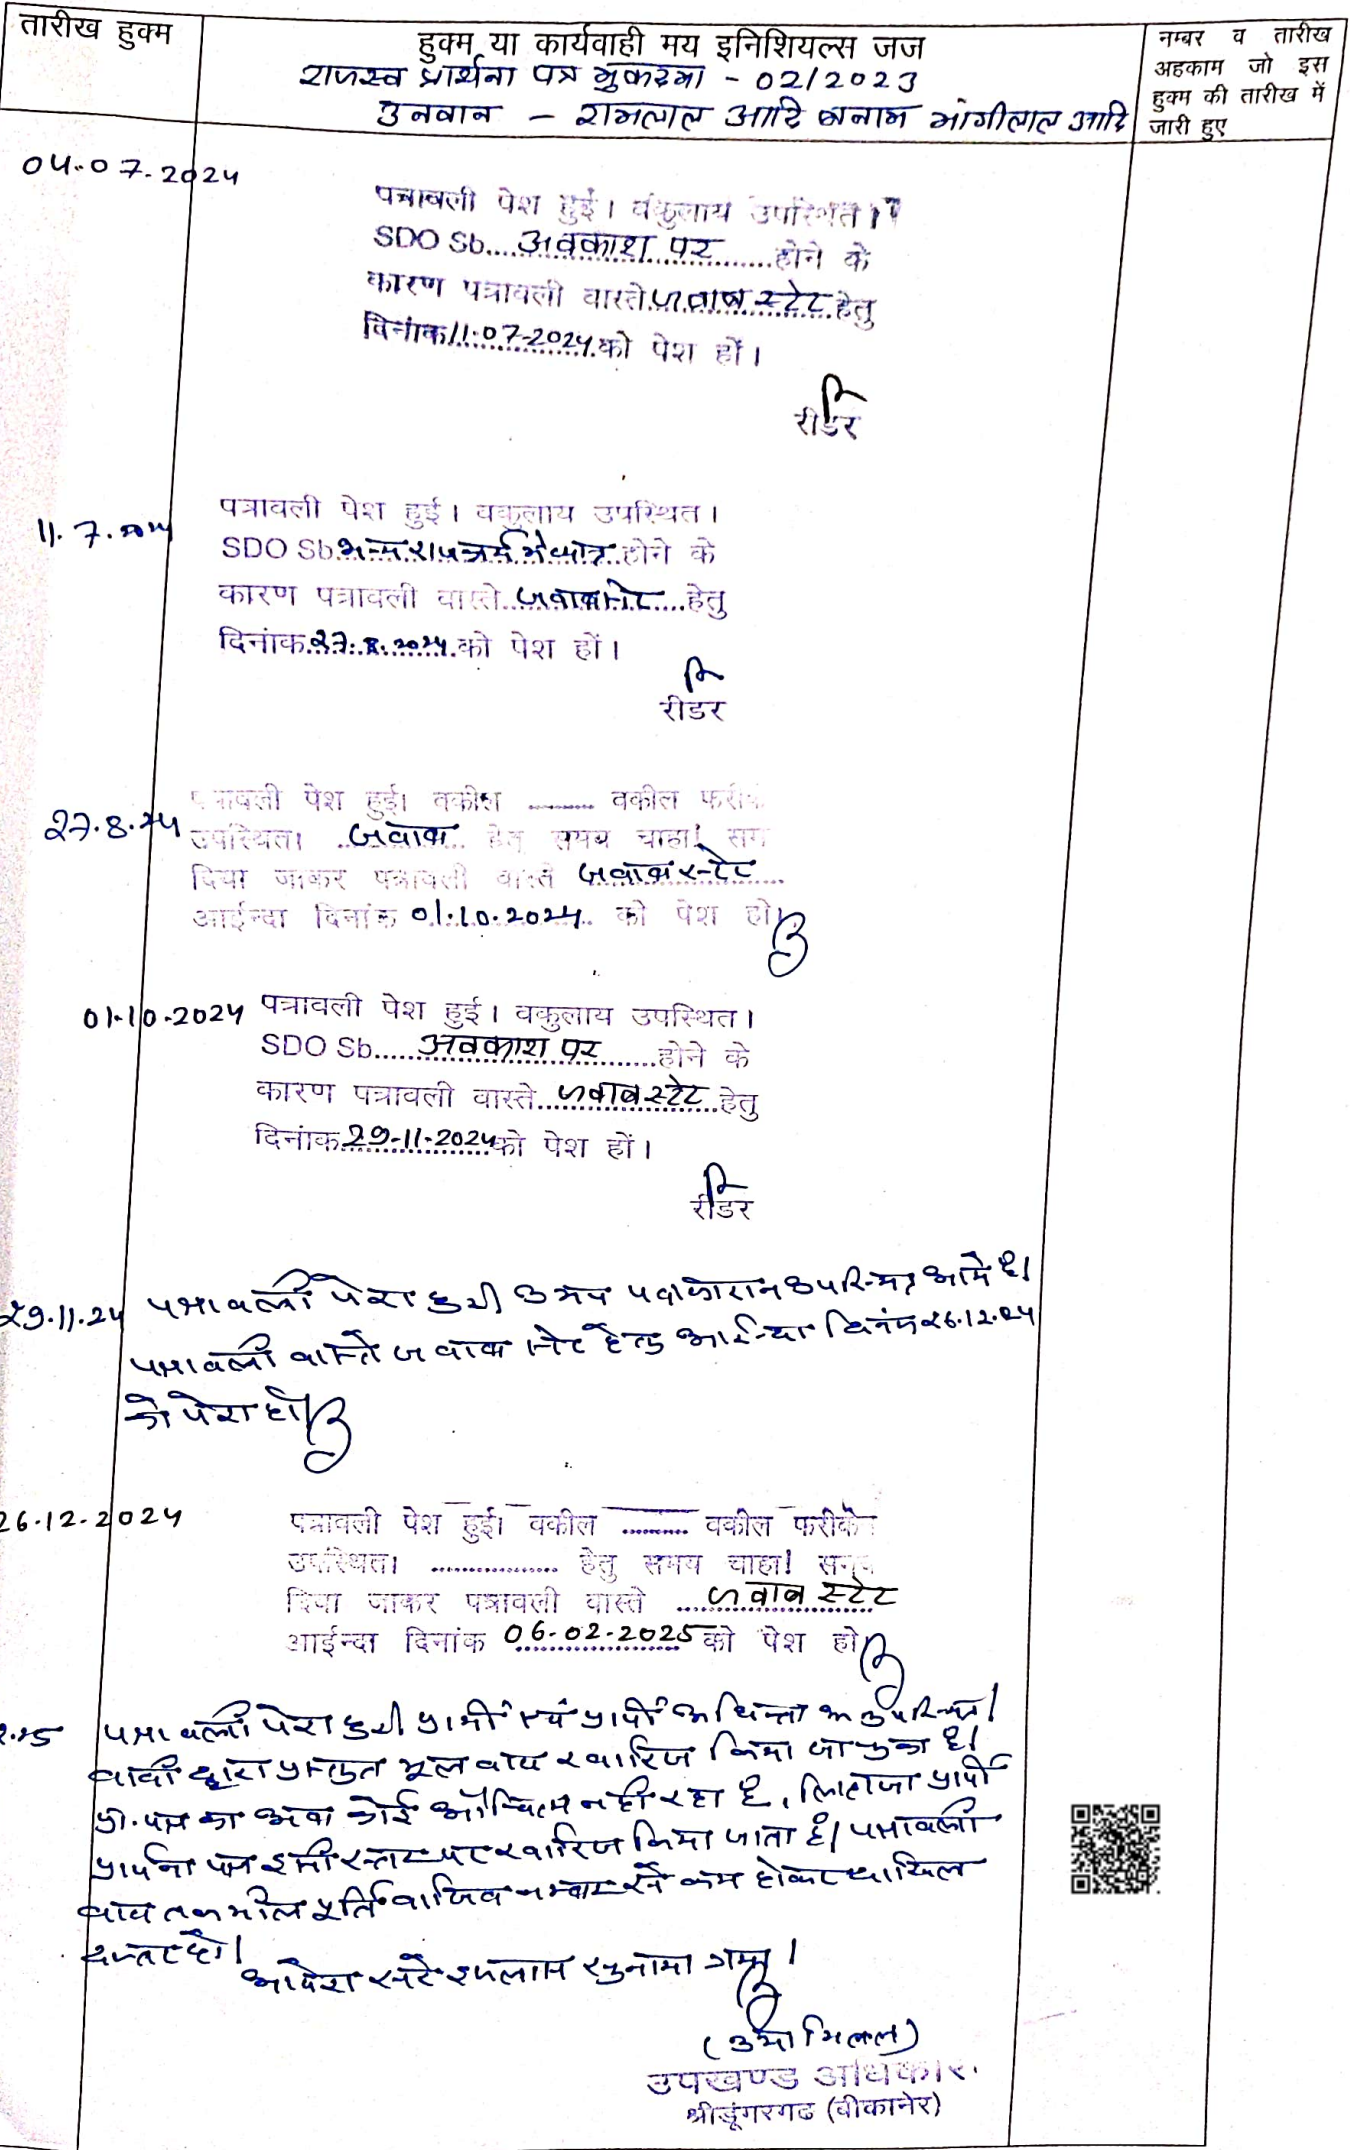 तारीख हुक्म
हुक्म या कार्यवाही मय इनिशियल्स जज
राजस्व प्रार्थना पत्र मुकदमा - 02/2023
उनवान - रामलाल आदि बनाम मांगीलाल आदि
नम्बर व तारीख
अहकाम जो इस
हुक्म की तारीख में
जारी हुए
04.07.2024
पत्रावली पेश हुई। वकुलाय उपस्थित।
SDO Sb....अवकाश पर.......होने के
कारण पत्रावली वास्ते जवाब स्टेट हेतु
दिनांक 11.07-2024 को पेश हों।
रीडर
11.7.2024
पत्रावली पेश हुई। वकुलाय उपस्थित।
SDO Sb. अन्य राजकार्य में व्यस्त होने के
कारण पत्रावली वास्ते..जवाब स्टे....हेतु
दिनांक 27.8.2024 को पेश हों।
रीडर
27.8.24
पत्रावली पेश हुई। वकील ........ वकील फरीकै
उपस्थित। ..जवाब.. हेतु समय चाहा! समय
दिया जाकर पत्रावली वास्ते जवाब स्टेट
आईन्दा दिनांक 01.10.2024 को पेश हो
01.10.2024
पत्रावली पेश हुई। वकुलाय उपस्थित।
SDO Sb.....अवकाश पर.......होने के
कारण पत्रावली वास्ते..जवाब स्टेट..हेतु
दिनांक 29-11-2024 को पेश हों।
रीडर
29.11.24
पत्रावली पेश हुयी उभय पक्षकारान उपस्थित आये है।
पत्रावली वास्ते जवाब स्टे हेतु आईन्दा दिनांक 26.12.24
को पेश हो
26.12.2024
पत्रावली पेश हुई। वकील ........ वकील फरीकैन
उपस्थित। ................ हेतु समय चाहा! समय
दिया जाकर पत्रावली वास्ते ....जवाब स्टेट
आईन्दा दिनांक 06-02-2025 को पेश हो
2.25
पत्रावली पेश हुयी प्रार्थी एवं प्रार्थी अधिवक्ता उपस्थित।
वादी द्वारा प्रस्तुत मूल वाद खारिज किया जा चुका है।
प्रा.पत्र का अब कोई औचित्य नही रहा है, लिहाजा प्रार्थी
प्रार्थना पत्र इसी स्तर पर खारिज किया जाता है। पत्रावली
बाद तकमील पूर्ति वाजिब नम्बर से कम होकर दाखिल
दफ्तर हो।
आदेश सरे इजलास सुनाया गया।
(उमा मित्तल)
उपखण्ड अधिकारी
श्रीडूंगरगढ (बीकानेर)